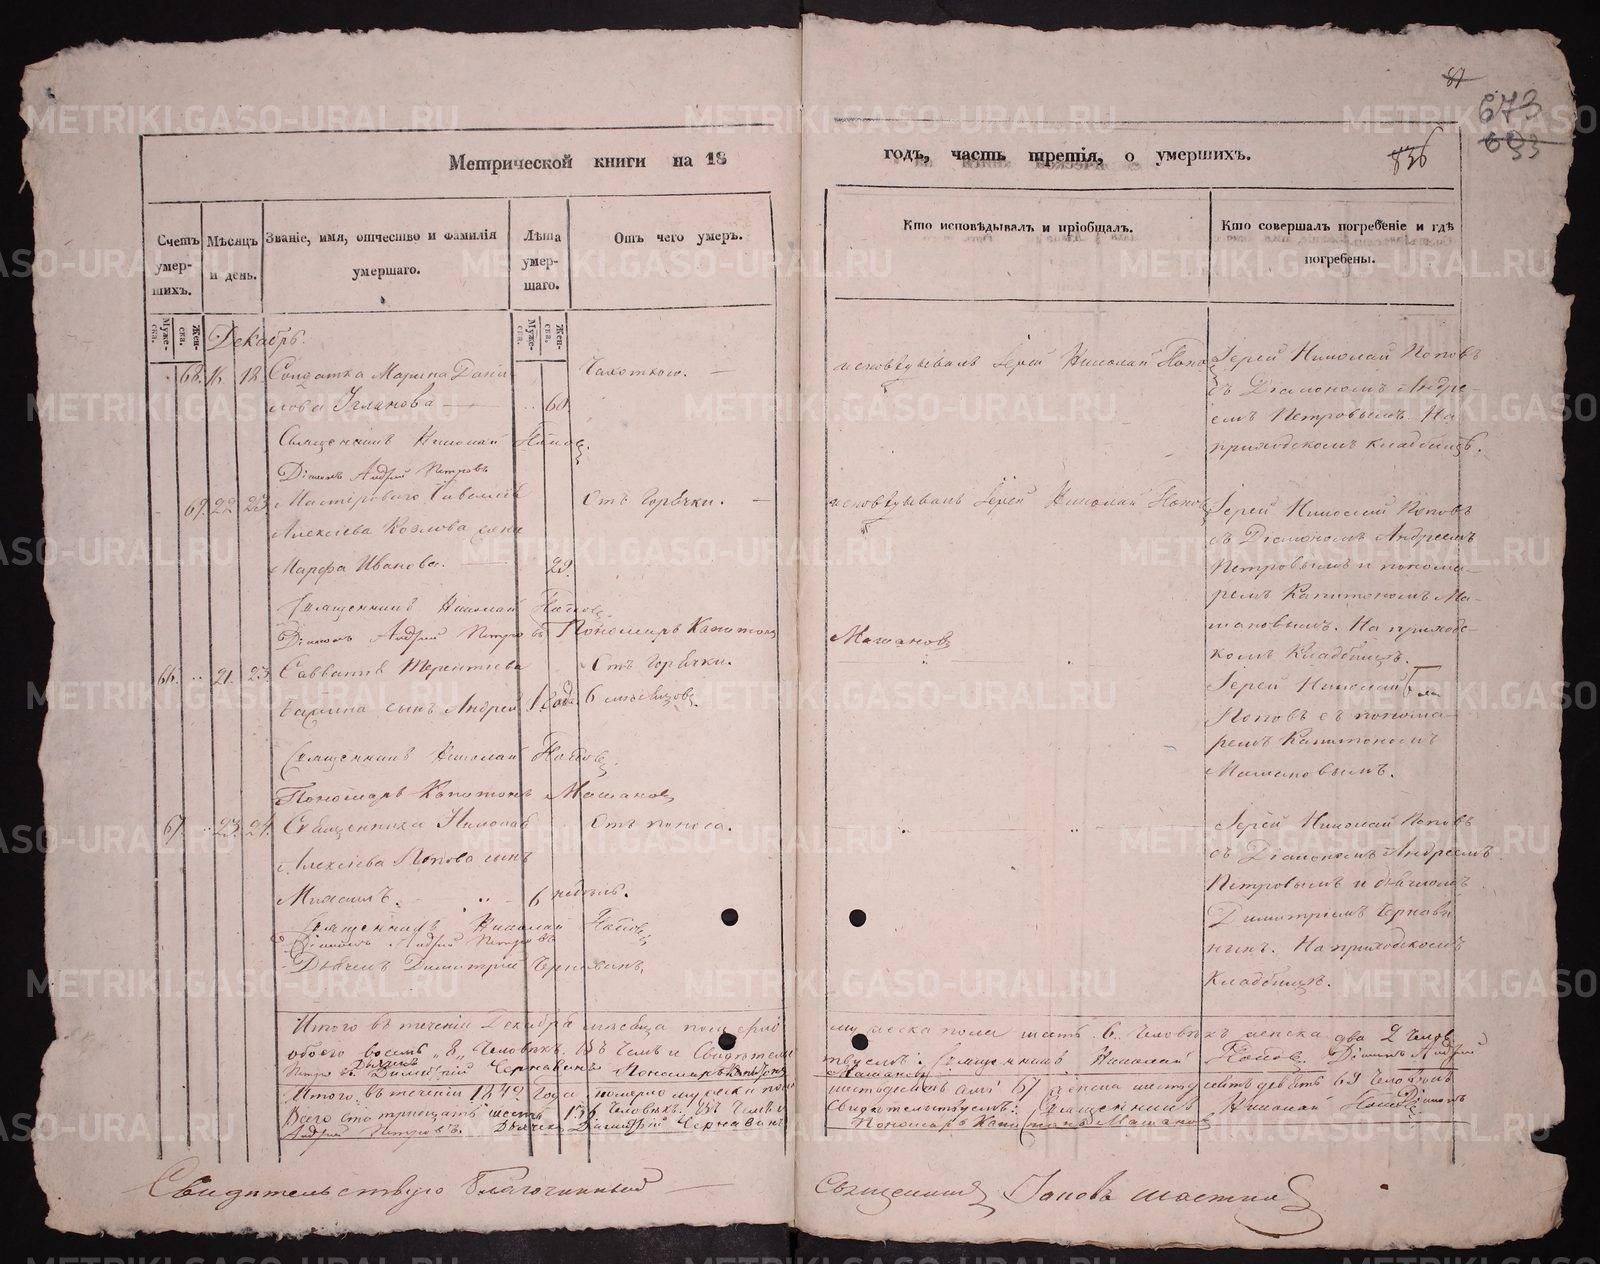 87
673
693
836
Метрической книги на 18
годъ, часть третія, о умершихъ.
Счетъ умер-шихъ.
Мѣсяцъ и день.
Званіе, имя, отчество и фамилія умершаго.
Лѣта умер-шаго.
Отъ чего умеръ.
Кто исповѣдывалъ и пріобщалъ.
Кто совершалъ погребеніе и гдѣ погребены.
Муже-ска.
Жен-ска.
Муже-ска.
Жен-ска.
Декабрь.
68. 16 18. Солдатка Марина Дани
лова 60
Чахоткою.
исповѣдывалъ Іерей Николай Попо
Іерей Николай Поповъ
съ Діакономъ Андре-
емъ Петровымъ. На
приходскомъ кладбищѣ.
Священникъ Николай Поповъ.
Діаконъ Андрей Петровъ
69. 22 23. Мастероваго
Алексіева Козлова жена
Марфа Иванова. 29.
Отъ горячки.
исповѣдывалъ Іерей Николай Поповъ
Іерей Николай Поповъ
съ Діакономъ Андреемъ
Петровымъ и понома-
ремъ Капитономъ Ма-
шановымъ. На приходс-
комъ Кладбищѣ.
Священникъ Николай Поповъ
Діаконъ Андрей Петровъ Пономарь Капитонъ
Машановъ
66. 21. 23. Савватія Терентьева
сынъ Андрей 1. года. 6 мѣсяцовъ.
Отъ горячки.
Іерей Николай
Поповъ съ понома-
ремъ Капитономъ
Машановымъ.
Священникъ Николай Поповъ.
Пономарь Капитонъ Машановъ
67. 23. 24. Священника Николая
Алексіева Попова сынъ
Михаилъ. 6 недѣль.
Отъ поноса.
Іерей Николай Поповъ
съ Діакономъ Андреемъ
Петровымъ и дьячкомъ
Димитріемъ Чернави
нымъ. На приходскомъ
Кладбищѣ.
Священникъ Николай Поповъ
Діаконъ Андрей Петровъ
Дьячекъ Димитрій Чернавинъ.
Итого въ теченіи Декабря мѣсяца
мужеска пола шесть 6. человѣкъ женска два 2 человѣ
обоего восемь „8„ человѣкъ. Въ чемъ и Свидѣтель
ствуемъ: Священникъ Николай Поповъ. Діаконъ Андрей
Петровъ Дьячекъ Димитрій Чернавинъ Пономарь Капитонъ
Машановъ
Итого въ теченіи 1849 года померло мужеска пола
шестьдесятъ семь 67 женска шестьдесятъ девять 69 человѣкъ
Всего сто тридцать шесть 136 человѣкъ. Въ чемъ и
Свидѣтельствуемъ: Священникъ Николай Поповъ Діаконъ
Андрей Петровъ. Дьячекъ Димитрій Чернавинъ
Пономарь Капитонъ Машановъ
Свидѣтельствую Благочинный
Священникъ
METRIKI.GASO-URAL.RU